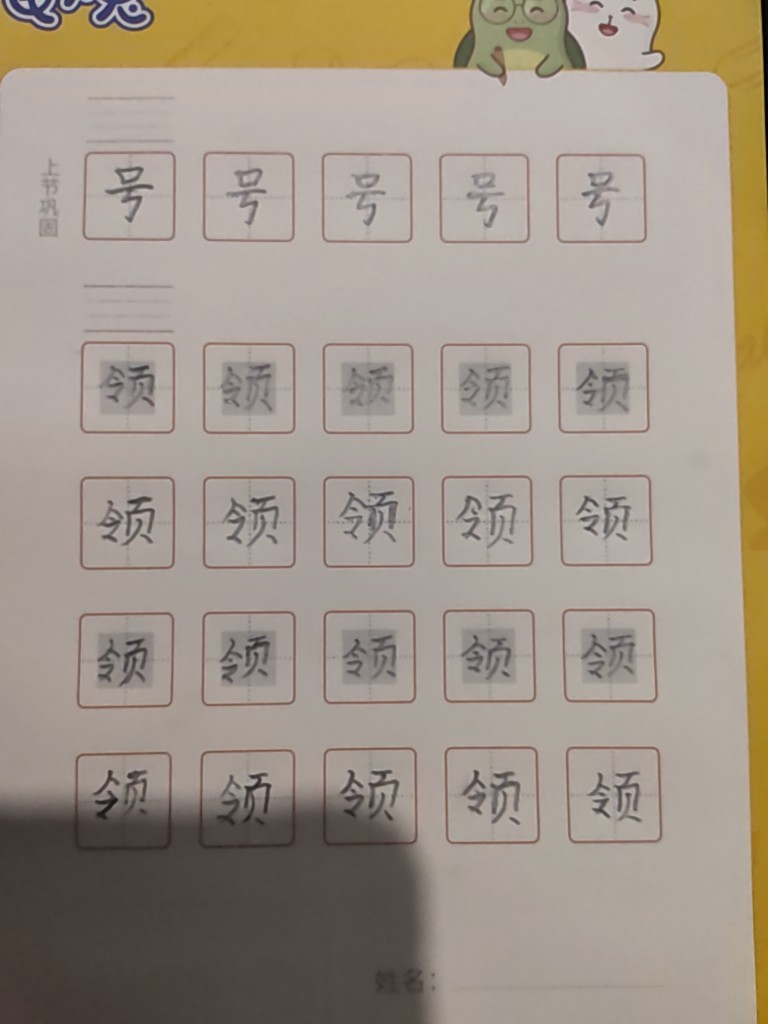 上节巩固
号 号 号 号 号
领 领 领 领 领
领 领 领 领 领
领 领 领 领 领
领 领 领 领 领
姓名：